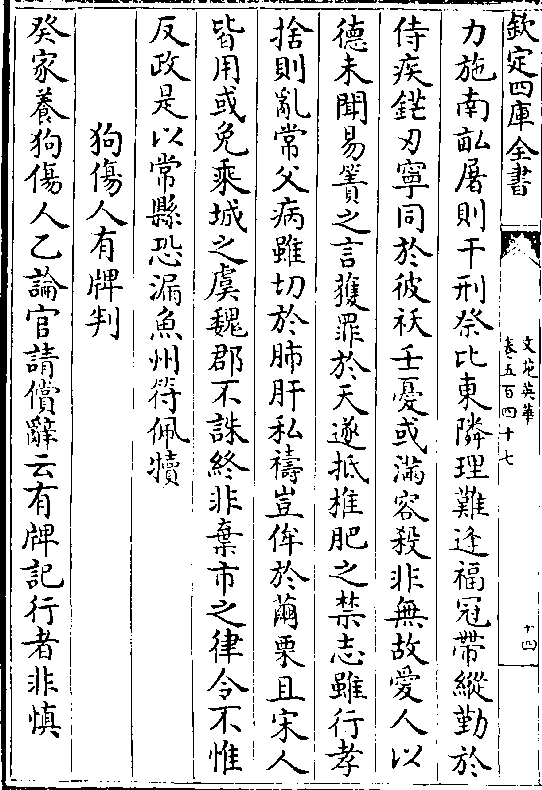 欽定四庫全書
文苑英華
卷五百四十七
十四
力施南畝屠則干刑祭比東隣理難逢福冠帶縱勤於
侍疾鋩刃寧同於彼祅壬憂或滿容殺非無故愛人以
德未聞易簀之言獲罪於天遂抵椎肥之禁志雖行孝
捨則亂常父病雖切於肺肝私禱豈侔於繭栗且宋人
皆用或免乘城之虞魏郡不誅終非棄市之律令不惟
反政是以常縣恐漏魚州符佩犢
狗傷人有牌判
癸家養狗傷人乙論官請償辭云有牌記行者非慎